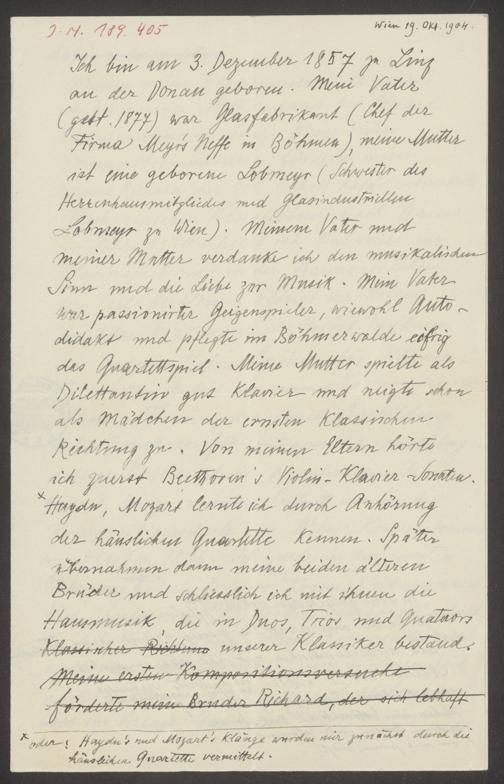 I. N. 189.405
Wien 19. Okt. 1904.
Ich bin am 3. Dezember 1857 zu Linz
an der Donau geboren. Mein Vater
(gest. 1877) war Glasfabrikant (Chef der
Firma Meyr's Neffe in Böhmen) meine Mutter
ist eine geborene Lobmeyr (Schwester des
Herrenhausmitgliedes und Glasindustriellen
Lobmeyr zu Wien). Meinem Vater und
meiner Mutter verdanke ich den musikalischen
Sinn und die Liebe zur Musik. Mein Vater
war passionirter Geigenspieler, wiewohl Auto-
didakt und pflegte im Böhmerwalde eifrig
das Quartettspiel. Meine Mutter spielte als
Dilettantin gut Klavier und neigte schon
als Mädchen der ernsten klassischen
Richtung zu. Von meinen Eltern hörte
ich zuerst Beethoven's Violin-Klavier-Sonaten.
x Haydn, Mozart lernte ich durch Anhörung
der häuslichen Quartette kennen. Später
übernahmen dann meine beiden älteren
Brüder und schliesslich ich mit ihnen die
Hausmusik, die in Duos, Trios und Quatuors
Klassischer Richtung unserer Klassiker bestand.
Meine ersten Kompositionsversuche
förderte mein Bruder Richard, der sich lebhaft
x oder: Haydn's und Mozart's Klänge wurden mir zunächst durch die
häuslichen Quartette vermittelt.